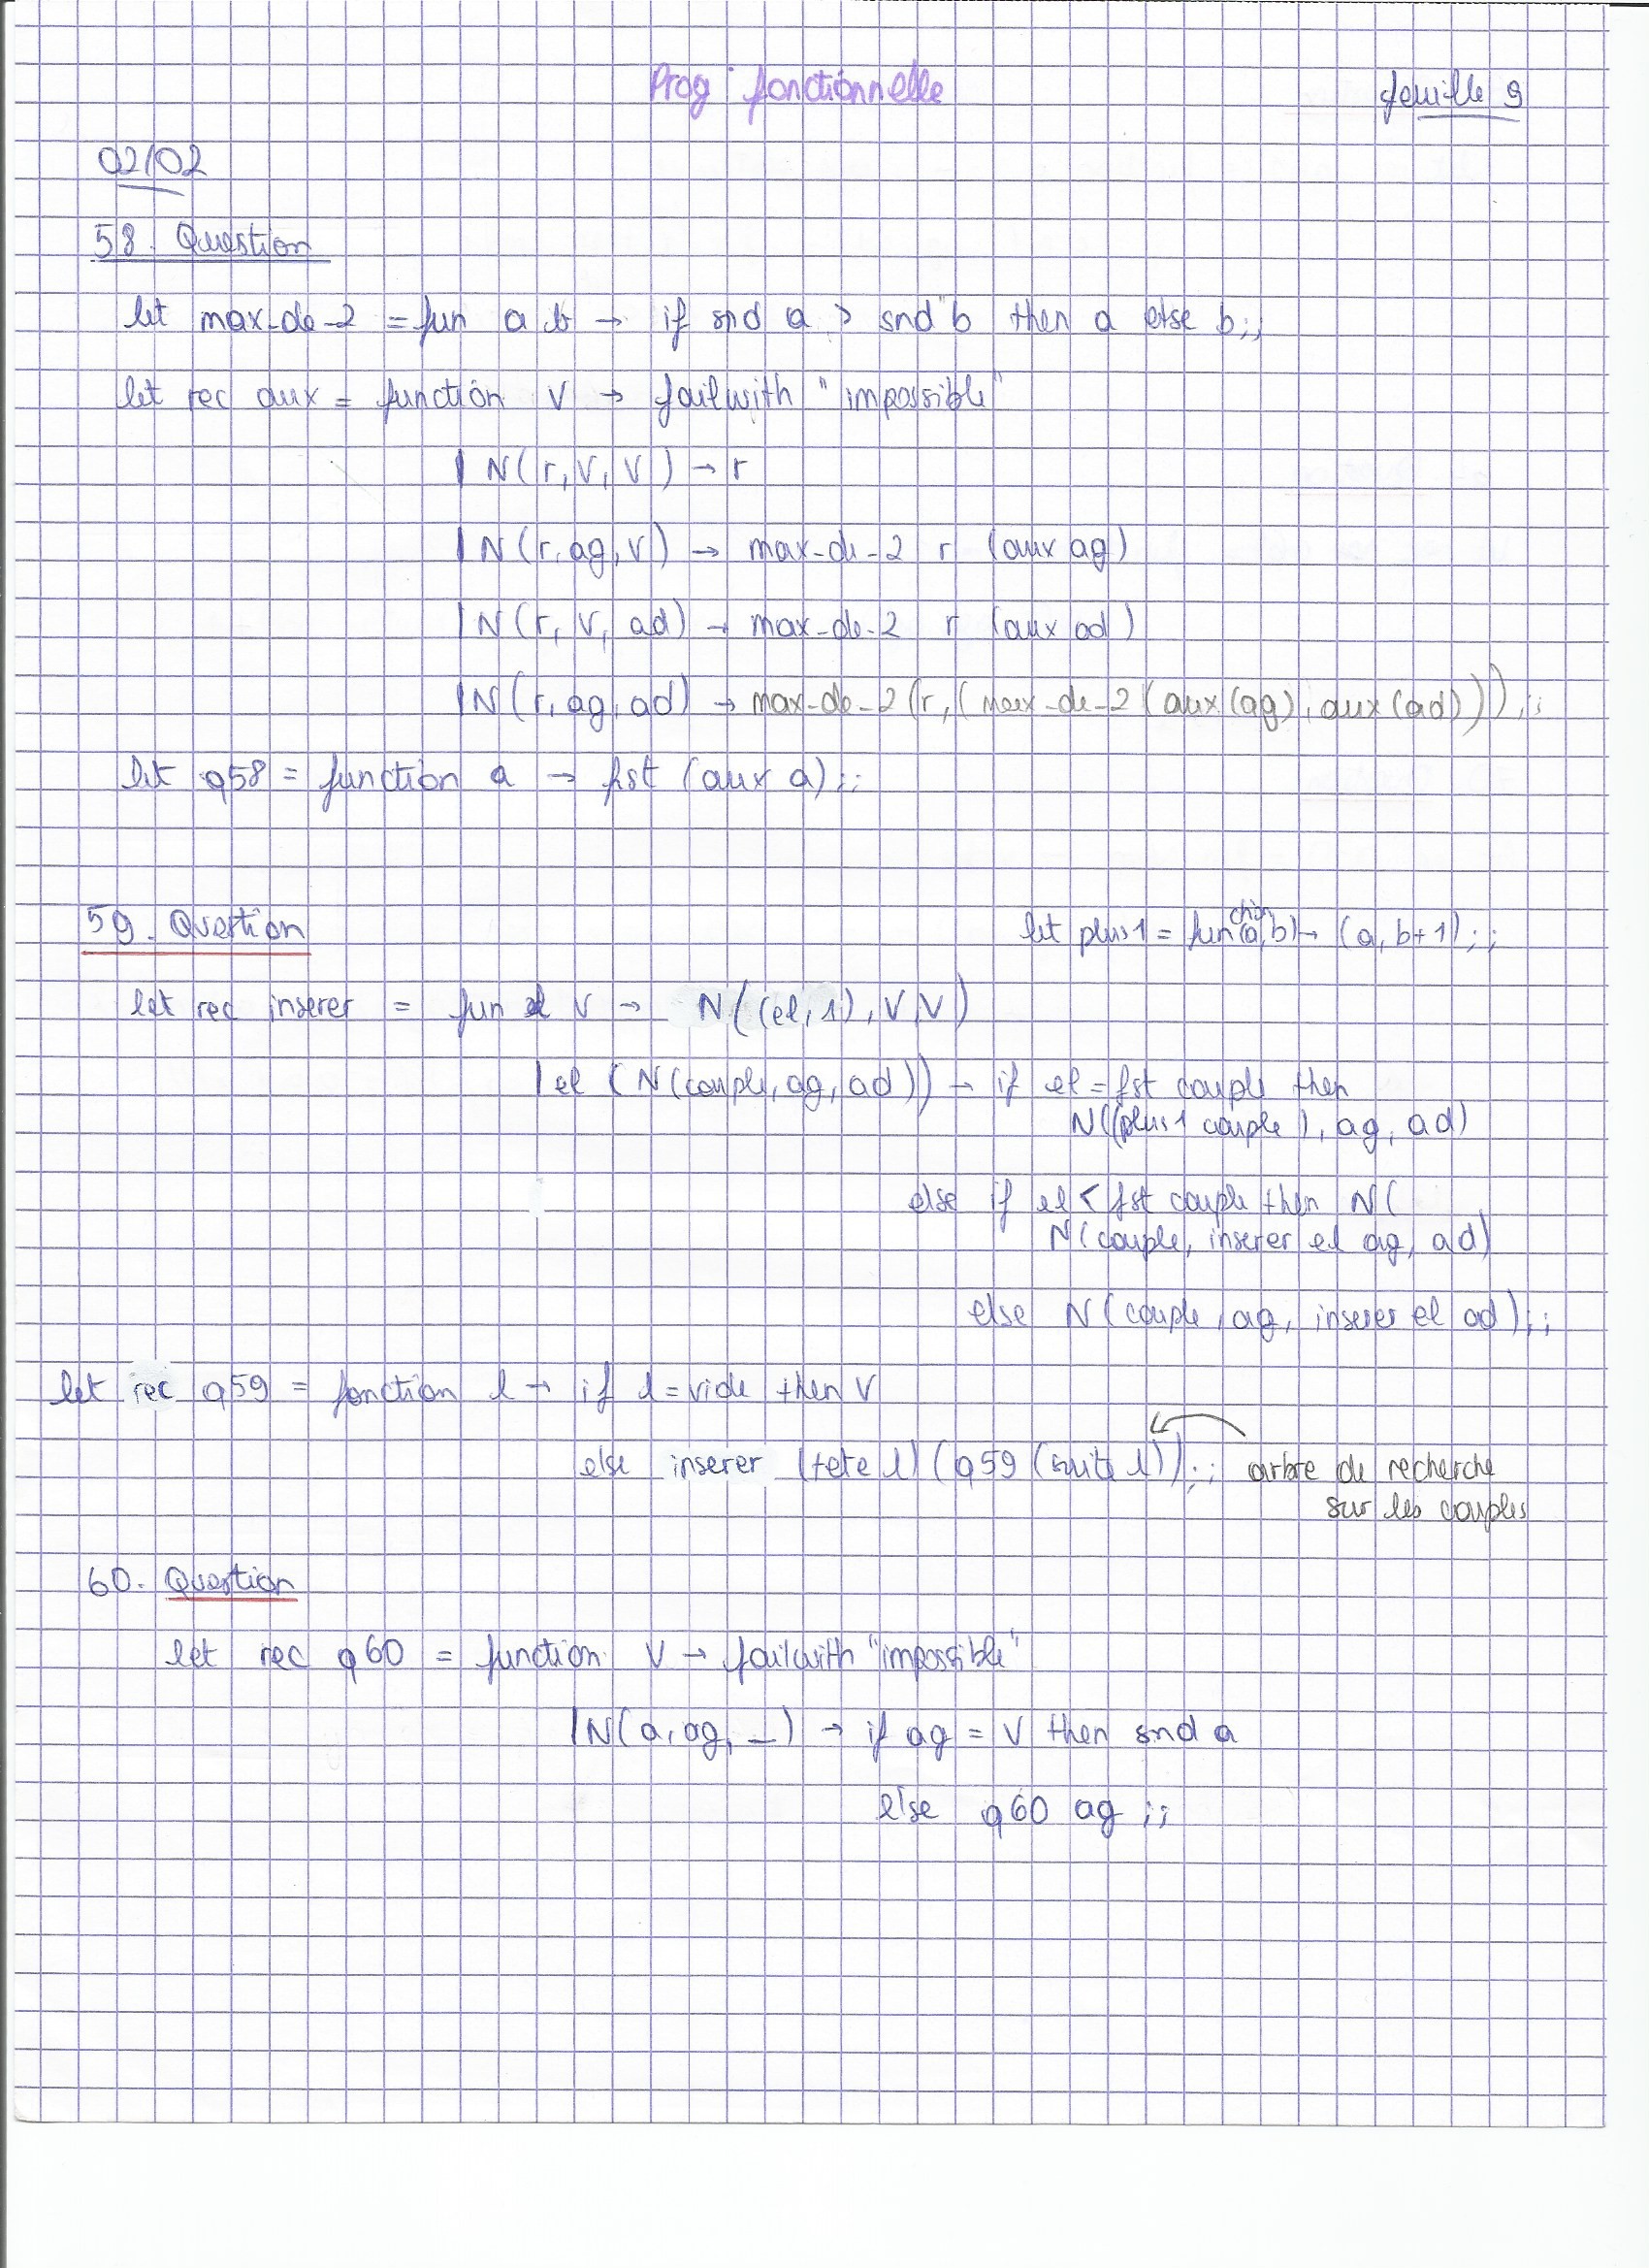 Prog° fonctionnelle
feuille 9
02/02
58. Question
let max-de-2 = fun a b → if snd a > snd b then a else b;;
let rec aux = function V → failwith "impossible"
| N(r, V, V) → r
| N(r, ag, V) → max-de-2 r (aux ag)
| N(r, V, ad) → max-de-2 r (aux ad)
| N(r, ag, ad) → max-de-2 (r, (max-de-2 (aux (ag), aux (ad))));;
let q58 = function a → fst (aux a);;
59. Question
let plus1 = function (a,b) → (a, b+1);;
let rec inserer = fun el V → N((el, 1), V, V)
| el (N(couple, ag, ad)) → if el = fst couple then
N((plus1 couple), ag, ad)
else if el < fst couple then N(
N(couple, inserer el ag, ad)
else N(couple, ag, inserer el ad);;
let rec q59 = fonction l → if l = vide then V
else inserer (tete l) (q59 (suite l));; arbre de recherche
sur les couples
60. Question
let rec q60 = function V → failwith "impossible"
| N(a, ag, _) → if ag = V then snd a
else q60 ag ;;